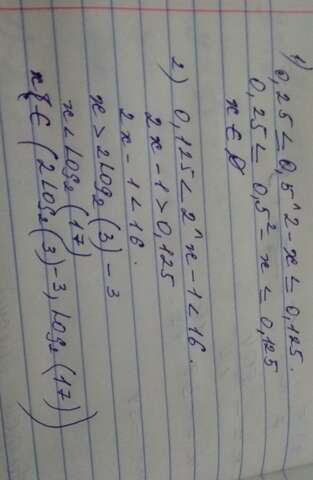 1)
0,25 ≤ 0,5^2-x ≤ 0,125.
0,25 ≤ 0,5² - x ≤ 0,125
x ∈ ∅
2) 0,125 < 2^x-1 < 16.
2x-1 > 0,125
2x-1 < 16.
x > 2Log₂(3)-3
x < Log₂(17)
x ∈ (2Log₂(3)-3, Log₂(17))